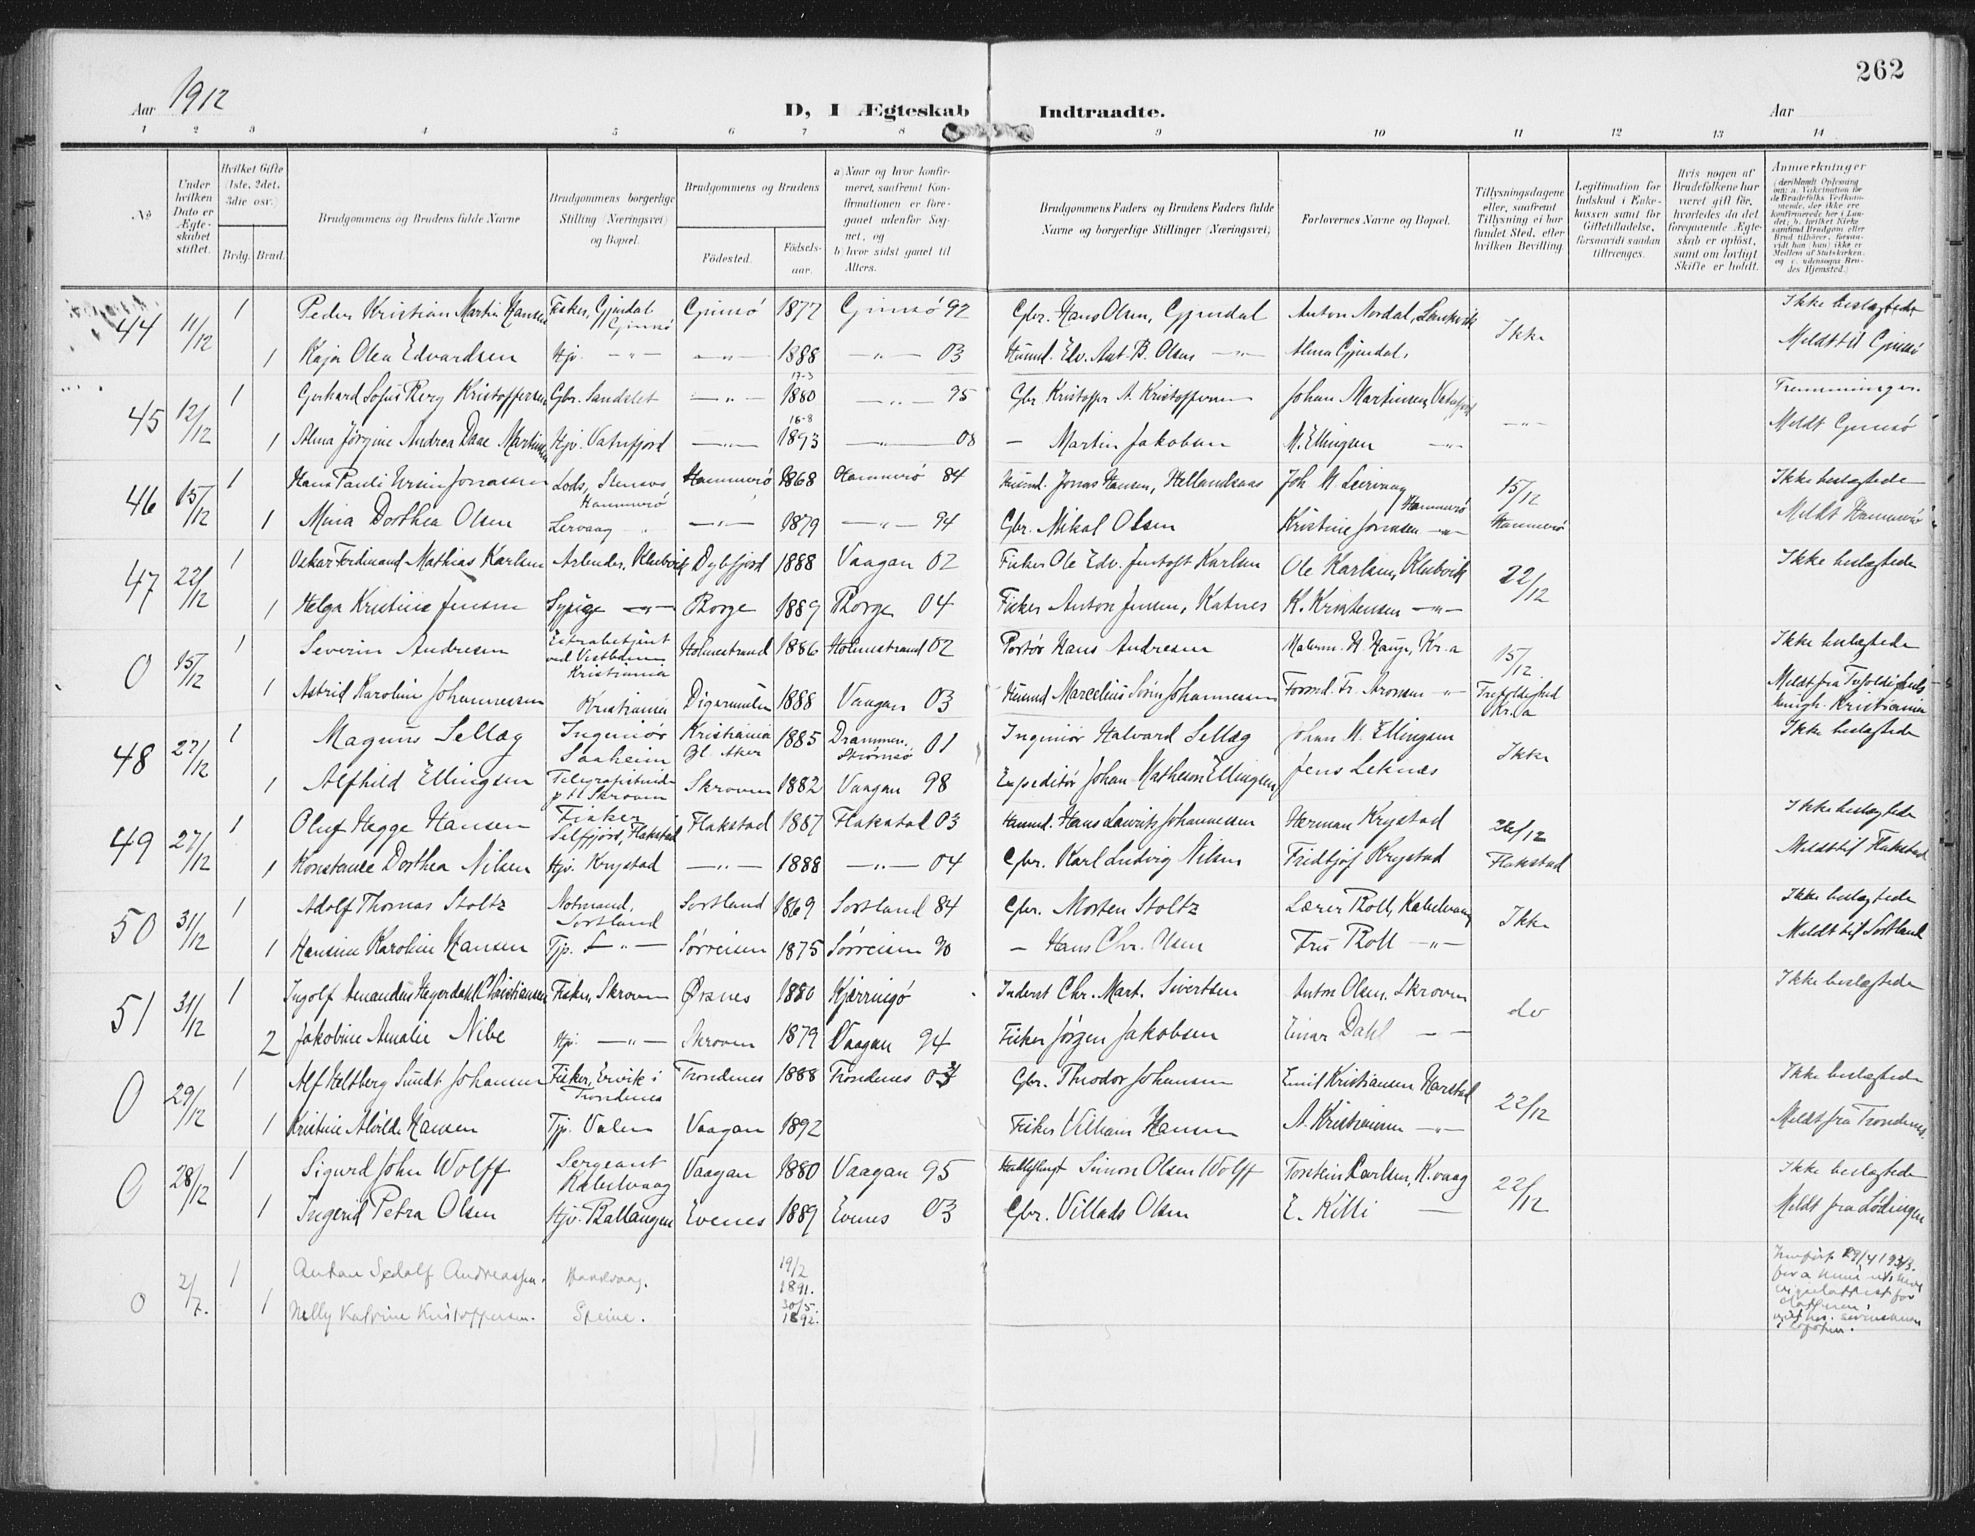 262
Aar 1912
D, I Ægteskab Indtraadte.
Aar
1 2 3 4 5 6 7 8 9 10 11 12 13 14
No
Under hvilken Dato er Ægteskabet stiftet.
Hvilket Gifte (1ste, 2det, 3die osv.)
Brdg. Brud.
Brudgommens og Brudens fulde Navne
Brudgommens borgerlige Stilling (Næringsvei) og Bopæl.
Brudgommens og Brudens
Födested. Födselsaar.
a) Naar og hvor konfirmeret, saafremt Konfirmationen er foregaaet udenfor Sognet, og
b) hvor sidst gaaet til Alters.
Brudgommens Faders og Brudens Faders fulde Navne og borgerlige Stillinger (Næringsvei)
Forlovernes Navne og Bopæl.
Tillysningsdagene eller, saafremt Tillysning ei har fundet Sted, efter hvilken Bevilling.
Legitimation for Indskud i Enkekassen samt for Giftetilladelse, forsaavidt saadan tiltrænges.
Hvis nogen af Brudefolkene har været gift før, hvorledes da det foregaaende Ægteskab er opløst, samt om lovligt Skifte er holdt.
Anmerkninger
44 11/12 1 Peder Kristian Martin Hansen Fisker, Gjendal Gimsö Gimsö 1877 Gimsö 92 Gbr. Hans Olsen, Gjendal Anton Nordal, Ikke Ikke beslægtede
1 Kaja Olea Edvardsen Hjv. —"— —"— 1888 —"— 03 Husmd. Edv. Ant. B. Olsen —"— Alma Gjendal. Meldt til Gimsö
45 12/12 1 Gerhard Sofus Berg Kristoffersen Gbr. Sandslet —"— 17-3 1880 —"— 95 Gbr Kristoffer A. Kristoffersen Johan Martinsen, Vatnfjord —"—
1 Alma Jørgine Andrea Daae Martinsen Hjv. Vatnfjord —"— 16-8 1893 —"— 08 — Martin Jakobsen M. Ellingsen —"— Meldt Gimsö
46 15/12 1 Hans Pauli Ursin Jonassen Lods, Hammerö Hammerö 1868 Hammerö 84 Husmd. Jonas Hansen, Hellandsaas Joh M Leirvaag Hammerö 15/12 Hammerö Ikke beslægtede
1 Mina Dorthea Olsen Lervaag —"— —"— 1879 —"— 94 Gbr. Mikal Olsen Kristine Jonassen —"— Meldt Hammerö
47 22/12 1 Oskar Ferdinand Mathias Karlsen Arbeider, Klubvik Dybfjord 1888 Vaagan 02 Fisker Ole Edv. Karlsen Ole Karlsen, Klubvik 22/12 Ikke beslægtede
1 Helga Kristine Jensen Sypige —"— Borge 1889 Borge 04 Fisker Anton Jensen, Katnes K. Kristensen —"—
0 15/12 1 Severin Andresen Extrabetjent ved Vestbanen Kristiania Holmestrand 1886 Holmestrand 02 Portör Hans Andresen Malerm. H. Hauge, Kr.a 15/12 Trefoldighed Kr.a Ikke beslægtede
1 Astrid Karoline Johannessen Kristiania Digermulen 1888 Vaagan 03 Husmd Marcelius Sørn Johannessen Formd. Fr. Aronsen —"— Meldt fra Trefoldigheds menigh. Kristiania
48 27/12 1 Magnus Sellæg Ingeniör Saaheim Kristiania Gl. Aker 1885 Drammen, Strömsö 01 Ingeniör Halvard Sellæg Johan M. Ellingsen Ikke Ikke beslægtede
1 Alfhild Ellingsen p.t. Skroven Skroven 1882 Vaagan 98 Expeditör Johan Matheson Ellingsen Jens Leknes
49 27/12 1 Oluf Hegge Hansen Fisker Selfjord, Flakstad Flakstad 1887 Flakstad 03 Husmd. Hans Lauritz Johannessen Herman Krystad 26/12 Flakstad Ikke beslægtede
1 Konstanse Dorthea Nilsen Hjv. Krystad —"— 1888 —"— 04 Gbr. Karl Ludvig Nilsen Fridtjof Krystad Meldt til Flakstad
50 31/12 1 Adolf Thomas Stoltz Notmand, Sortland Sortland 1869 Sortland 84 Gbr. Morten Stoltz Lærer Tholl, Kabelvaag Ikke Ikke beslægtede
1 Hansine Karoline Hansen Tjp. —"— Sörreisen 1875 Sörreisen 90 — Hans Chr. Olsen Fru Tholl —"— Meldt til Sortland
51 31/12 1 Ingolf Amandus Hegerdahl Christiansen Fisker, Skroven Ørsnes 1880 Kjerringö Inderst Chr. Mart. Sivertsen Anton Olsen, Skroven do Ikke beslægtede
2 Jakobine Amalie Nibe Hjv. —"— Skroven 1879 Vaagan 94 Fisker Jørgen Jakobsen Einar Dahl — —
0 29/12 1 Alf Heltberg Sundt Johansen Fisker, Ervik i Trondenes Trondenes 1888 Trondenes 03 Gbr. Theodor Johansen Emil Kristiansen Harstad 22/12 Ikke beslægtede
1 Kristine Alvilde Hansen Tjp. Valen Vaagan 1892 Fisker Vilhelm Hansen A. Kristiansen —"— Meldt fra Trondenes
0 28/12 1 Sigurd John Wolff Sergeant Kabelvaag Vaagan 1880 Vaagan 95 Simon Olsen Wolff Torstein Carlsen, K.vaag 22/12 Ikke beslægtede
1 Ingerid Petra Olsen Hjv. Ballangen Evenes 1889 Evenes 03 Gbr. Villads Olsen E. Killi — Meldt fra Lödingen
0 2/7. 1 Anton Sedolf Andreassen. 19/2 1891.
1 Nelly Katrine Kristoffersen. Steine. 30/5. 1892.